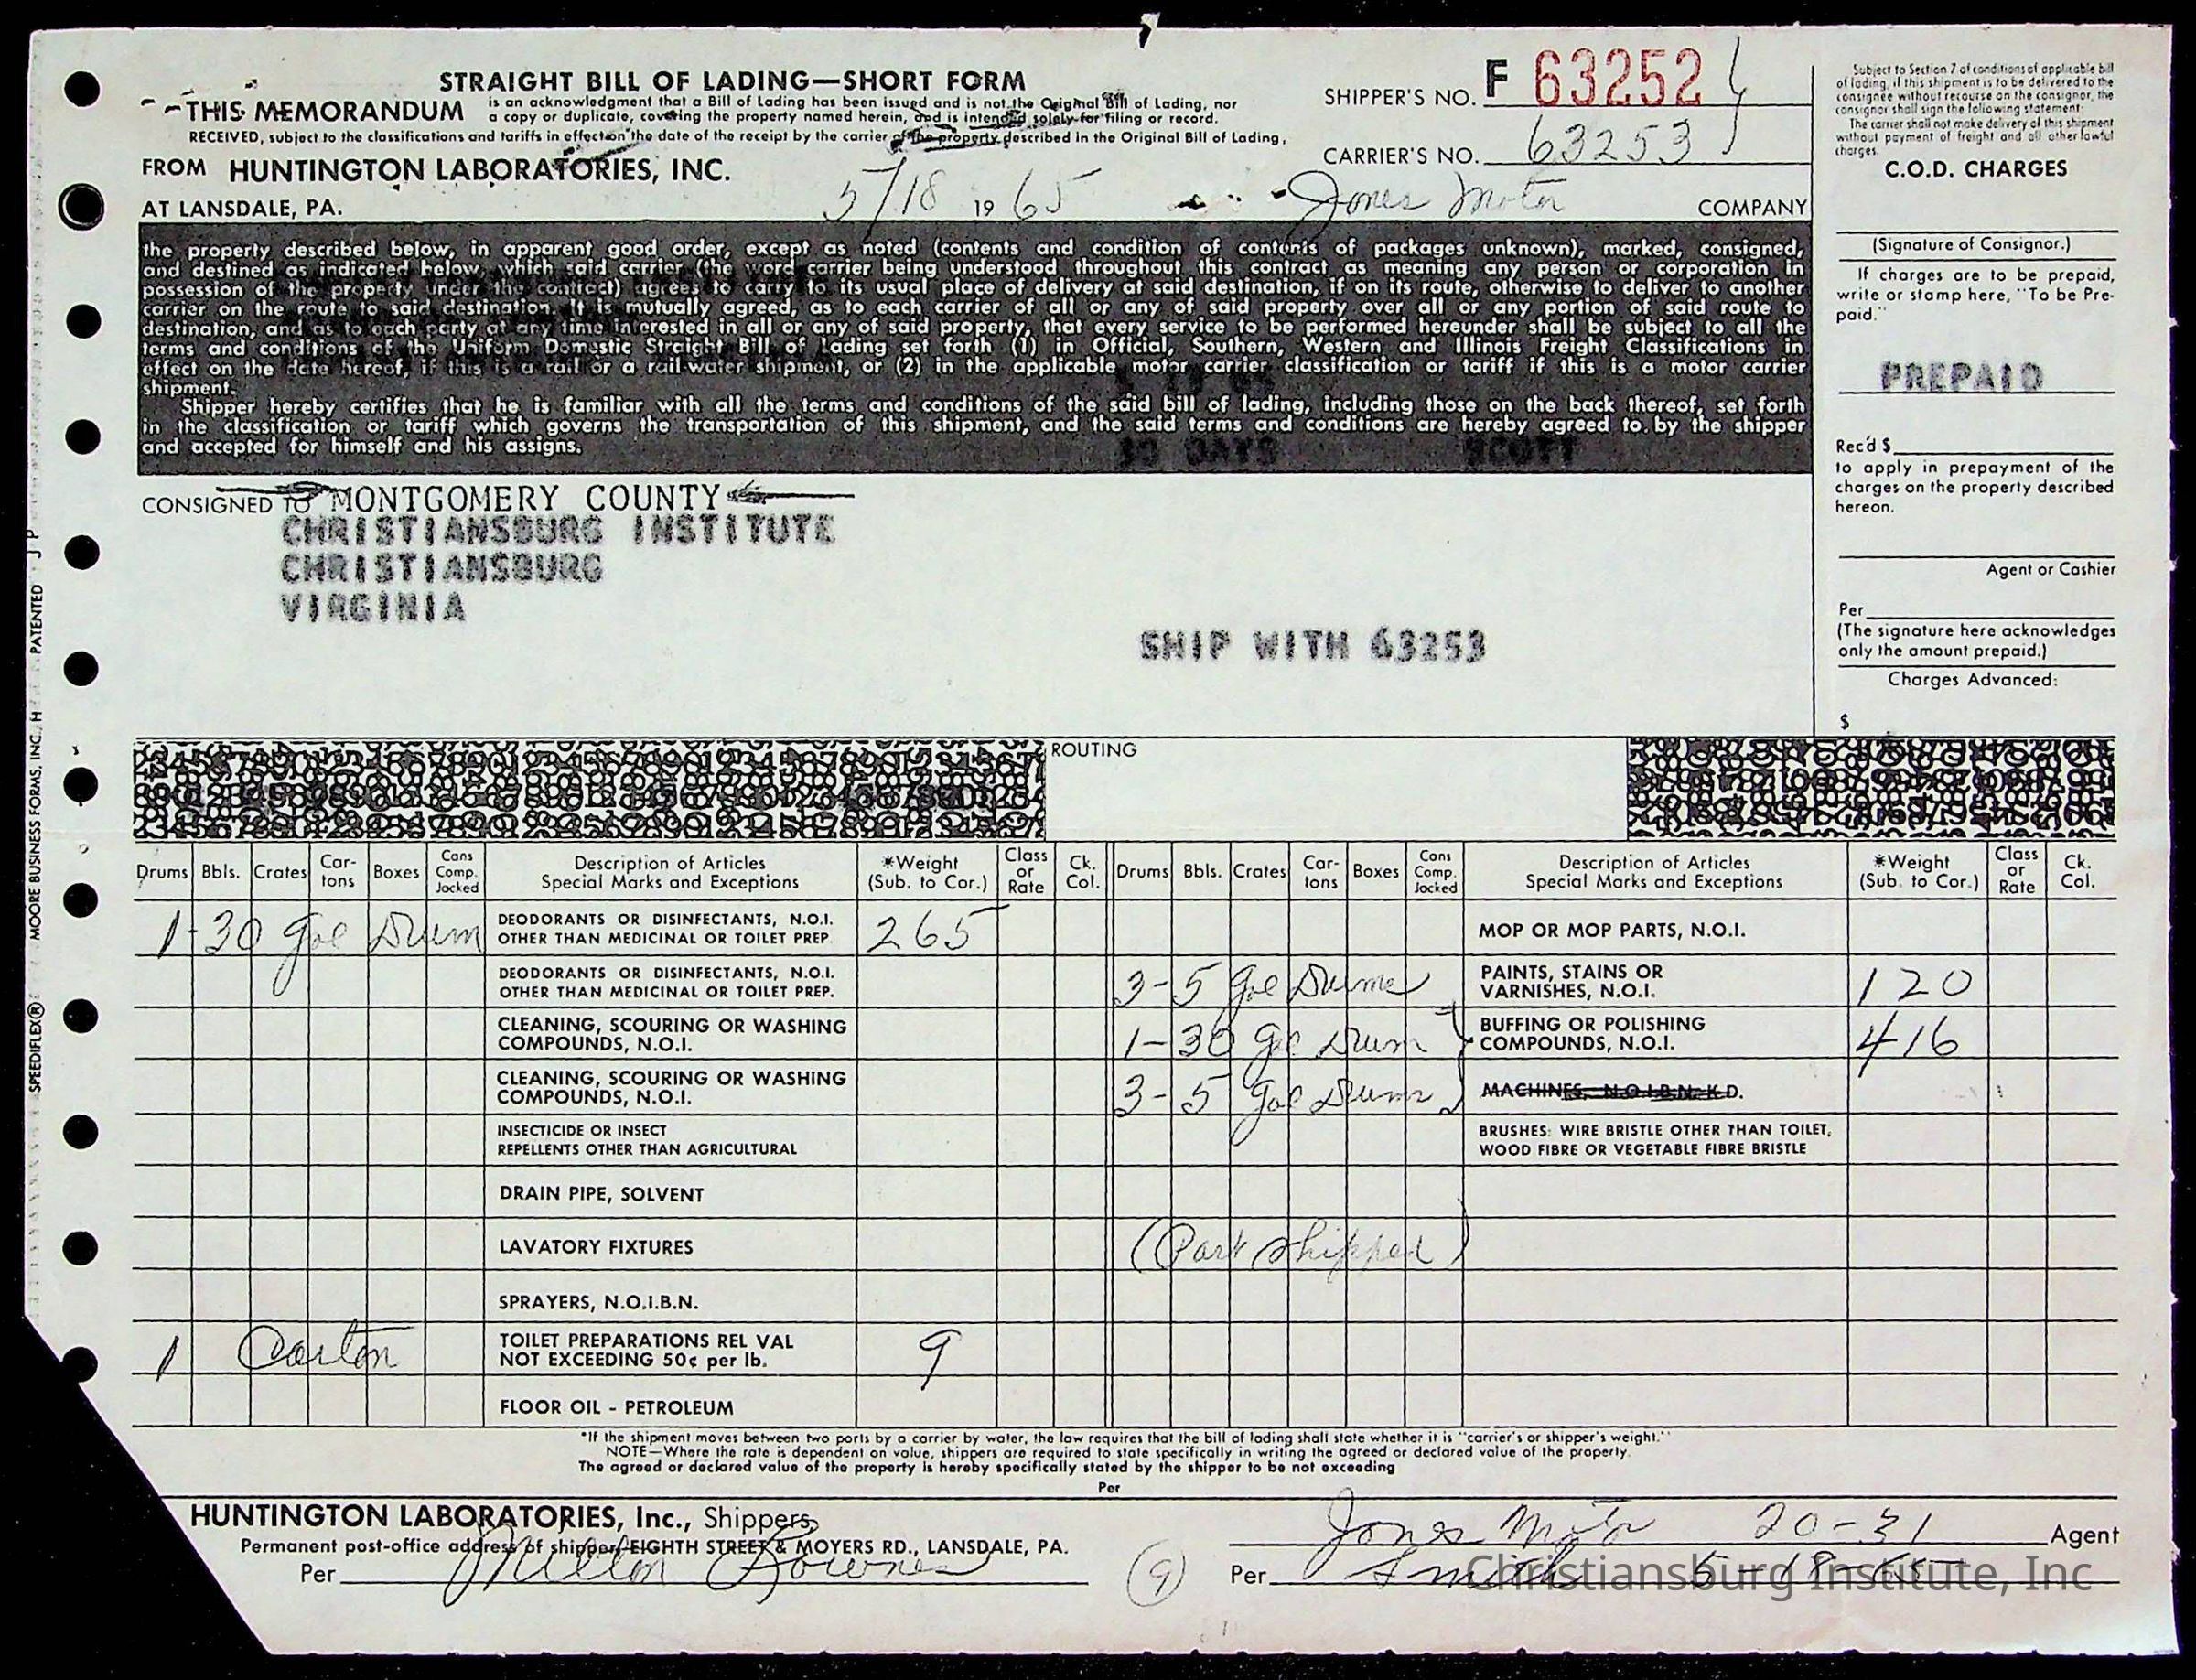 STRAIGHT BILL OF LADING—SHORT FORM
THIS MEMORANDUM is an acknowledgment that a Bill of Lading has been issued and is not the Original Bill of Lading, nor
a copy or duplicate, covering the property named herein, and is intended solely for filing or record.
RECEIVED, subject to the classifications and tariffs in effect on the date of the receipt by the carrier of the property described in the Original Bill of Lading,
SHIPPER'S NO. F 63252
CARRIER'S NO. 63253
FROM HUNTINGTON LABORATORIES, INC.
AT LANSDALE, PA. 5/18 1965 Jones Motor COMPANY
the property described below, in apparent good order, except as noted (contents and condition of contents of packages unknown), marked, consigned,
and destined as indicated below, which said carrier (the word carrier being understood throughout this contract as meaning any person or corporation in
possession of the property under the contract) agrees to carry to its usual place of delivery at said destination, if on its route, otherwise to deliver to another
carrier on the route to said destination. It is mutually agreed, as to each carrier of all or any of said property over all or any portion of said route to
destination, and as to each party at any time interested in all or any of said property, that every service to be performed hereunder shall be subject to all the
terms and conditions of the Uniform Domestic Straight Bill of Lading set forth (1) in Official, Southern, Western and Illinois Freight Classifications in
effect on the date hereof, if this is a rail or a rail-water shipment, or (2) in the applicable motor carrier classification or tariff if this is a motor carrier
shipment.
Shipper hereby certifies that he is familiar with all the terms and conditions of the said bill of lading, including those on the back thereof, set forth
in the classification or tariff which governs the transportation of this shipment, and the said terms and conditions are hereby agreed to by the shipper
and accepted for himself and his assigns.
30 DAYS SCOTT
CONSIGNED TO MONTGOMERY COUNTY
CHRISTIANSBURG INSTITUTE
CHRISTIANSBURG
VIRGINIA
SHIP WITH 63253
Subject to Section 7 of conditions of applicable bill
of lading, if this shipment is to be delivered to the
consignee without recourse on the consignor, the
consignor shall sign the following statement:
The carrier shall not make delivery of this shipment
without payment of freight and all other lawful
charges.
C.O.D. CHARGES
(Signature of Consignor.)
If charges are to be prepaid,
write or stamp here, "To be Pre-
paid."
PREPAID
Rec'd $
to apply in prepayment of the
charges on the property described
hereon.
Agent or Cashier
Per
(The signature here acknowledges
only the amount prepaid.)
Charges Advanced:
$
ROUTING
SPEEDIFLEX® MOORE BUSINESS FORMS, INC., H PATENTED J P
Drums Bbls. Crates Car-tons Boxes Cans Comp. Jacked Description of Articles Special Marks and Exceptions *Weight (Sub. to Cor.) Class or Rate Ck. Col. Drums Bbls. Crates Car-tons Boxes Cans Comp. Jacked Description of Articles Special Marks and Exceptions *Weight (Sub. to Cor.) Class or Rate Ck. Col.
1-30 gal Drum DEODORANTS OR DISINFECTANTS, N.O.I. OTHER THAN MEDICINAL OR TOILET PREP. 265 MOP OR MOP PARTS, N.O.I.
DEODORANTS OR DISINFECTANTS, N.O.I. OTHER THAN MEDICINAL OR TOILET PREP. 3-5 gal Drums PAINTS, STAINS OR VARNISHES, N.O.I. 120
CLEANING, SCOURING OR WASHING COMPOUNDS, N.O.I. 1-30 gal Drum BUFFING OR POLISHING COMPOUNDS, N.O.I. 416
CLEANING, SCOURING OR WASHING COMPOUNDS, N.O.I. 3-5 gal Drums MACHINES, N.O.I.B.N. K.D.
INSECTICIDE OR INSECT REPELLENTS OTHER THAN AGRICULTURAL BRUSHES: WIRE BRISTLE OTHER THAN TOILET, WOOD FIBRE OR VEGETABLE FIBRE BRISTLE
DRAIN PIPE, SOLVENT
LAVATORY FIXTURES (Part Shipped)
SPRAYERS, N.O.I.B.N.
1 Carton TOILET PREPARATIONS REL VAL NOT EXCEEDING 50¢ per lb. 9
FLOOR OIL - PETROLEUM
*If the shipment moves between two ports by a carrier by water, the law requires that the bill of lading shall state whether it is "carrier's or shipper's weight."
NOTE—Where the rate is dependent on value, shippers are required to state specifically in writing the agreed or declared value of the property.
The agreed or declared value of the property is hereby specifically stated by the shipper to be not exceeding
Per
HUNTINGTON LABORATORIES, Inc., Shippers
Jones Motor 20-31 Agent
Permanent post-office address of shipper, EIGHTH STREET & MOYERS RD., LANSDALE, PA.
Per Milton
(9)
Per Smith 5-18-65
Christiansburg Institute, Inc